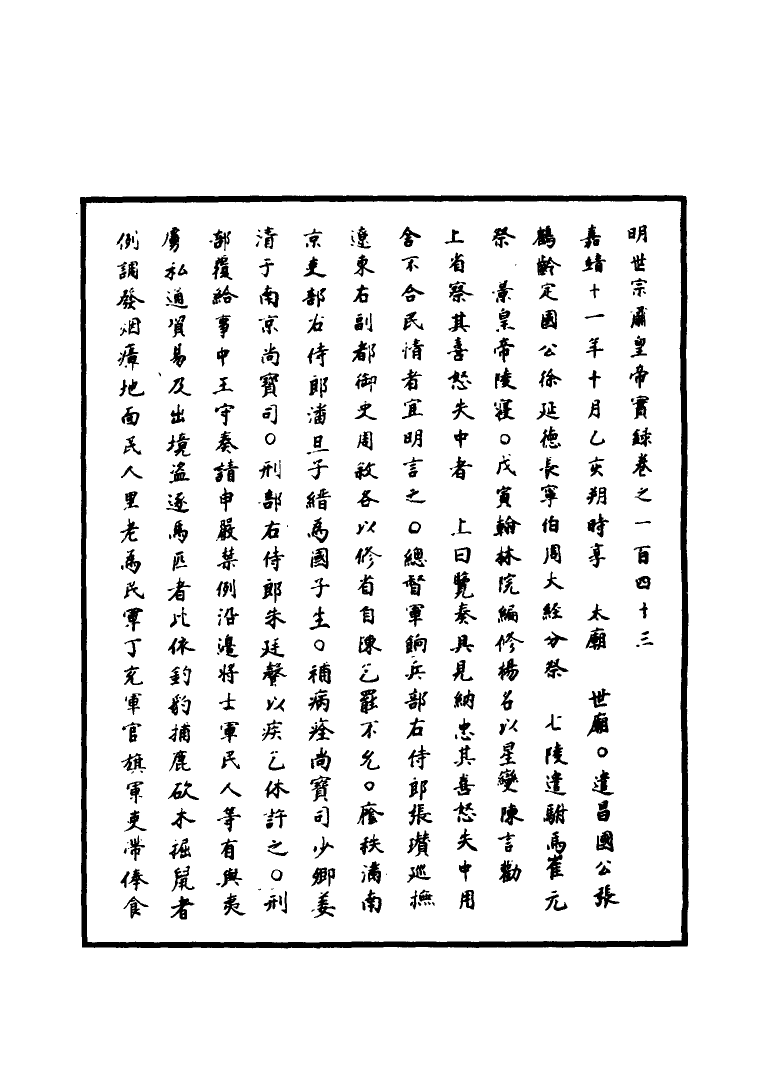 明世宗肅皇帝實錄卷之一百四十三
嘉靖十一年十月乙亥朔時享　太廟　世廟○遣昌國公張
鶴齡定國公徐延德長寧伯周大經分祭　七陵遣駙馬崔元
祭　景皇帝陵寢○戊寅翰林院編修楊名以星變陳言勸
上省察其喜怒失中者　上曰覽奏具見納忠其喜怒失中用
舍不合民情者宜明言之○總督軍餉兵部右侍郎張瓚巡撫
遼東右副都御史周敘各以修省自陳乞罷不允○廕秩滿南
京吏部右侍郎潘旦子縉為國子生○補病痊尚寶司少卿姜
清于南京尚寶司○刑部右侍郎朱廷聲以疾乞休許之○刑
部覆給事中王守奏請申嚴禁例沿邊將士軍民人等有與夷
虜私通貿易及出境盜逐馬匹者比依釣豹捕鹿砍木掘鼠者
例調發烟瘴地面民人里老為民軍丁充軍官旗軍吏帶俸食